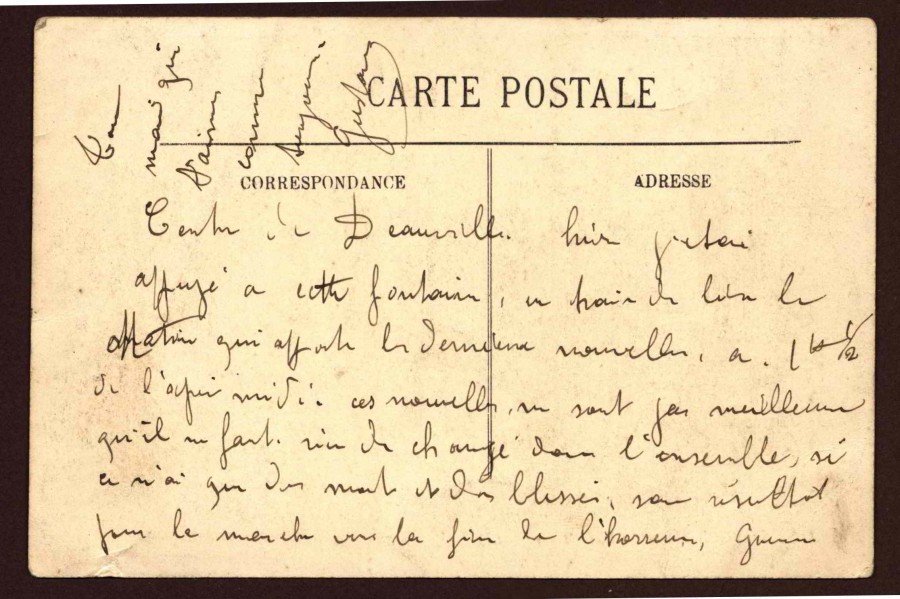 CARTE POSTALE
CORRESPONDANCE
ADRESSE
Centre de Deauville. hier j'etai
appuyé a cette fontaine, en train de lire le
Matin qui apporte les dernieres nouvelles, a 1h 1/2
de l'apres midi. ces nouvelles, ne sont pas meilleures
qu'il ne faut. rien de changé dans l'ensemble, si
ce n'ai que des mort et des blessés, sans résultat
pour la marche vers la fin de l'horreur, Guerre
Ton
mari qui
t'aime
comme
toujours
Gustave